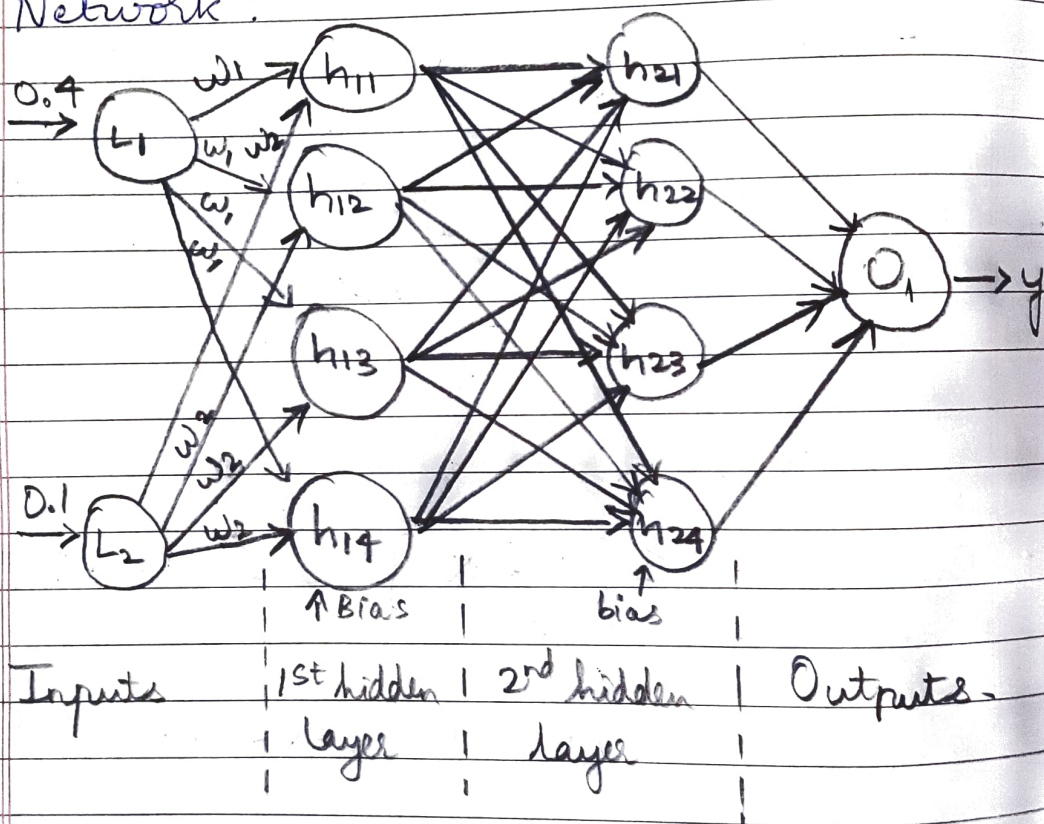 Network.
0.4
L1
w1
w1
w2
w1
w1
h11
h12
h13
h14
h21
h22
h23
h24
O1
y
0.1
L2
w2
w2
w2
↑ Bias
↑
bias
Inputs
1st hidden
layer
2nd hidden
layer
Outputs.